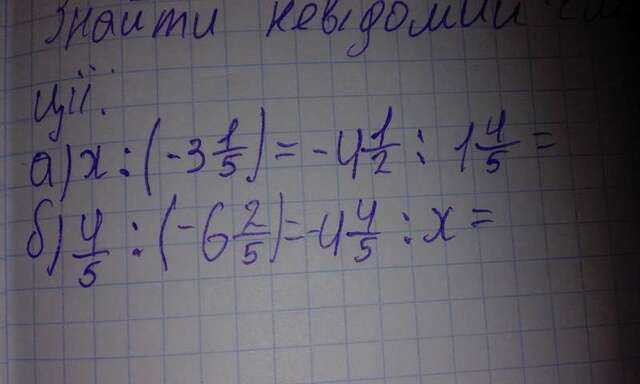 Знайти невідомий
ції.
а) x : (-3 1/5) = -4 1/2 : 1 4/5 =
б) 4/5 : (-6 2/5) = -4 4/5 : x =